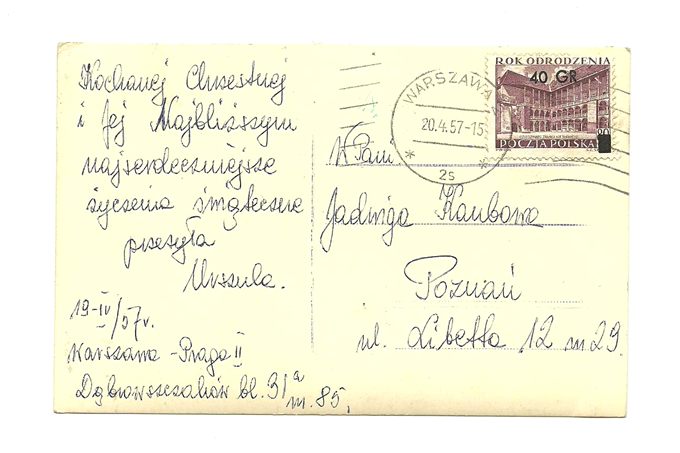 Kochanej Chrzestnej
i Jej Najbliższym
najserdeczniejsze
życzenia świąteczne
przesyła
Urszula.
19-IV/57r.
Warszawa-Praga II
Dąbrowszczaków bl. 31a m. 85.
WARSZAWA
20.4.57-15
2s
ROK ODRODZENIA
40 GR
POCZTA POLSKA
W Pani
Jadwiga
Poznań
ul. Libelta 12 m 29.